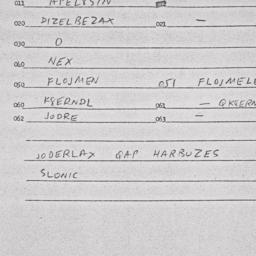 011 APELBSIN
020 DIZELBEZAX 021 —
030 O
040 NEX
050 FLOJMEN 051 FLOJMEL
060 KGERNDL 061 —
062 JODRE 063 —
JODERLAX GAP HARBUZES
SLONIC